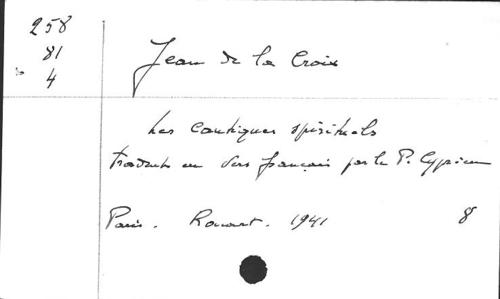 258
81
4
Jean de la Croix
Les cantiques spirituels
traduits en vers français par le P. Cyprien
Paris. Rouart. 1941 8